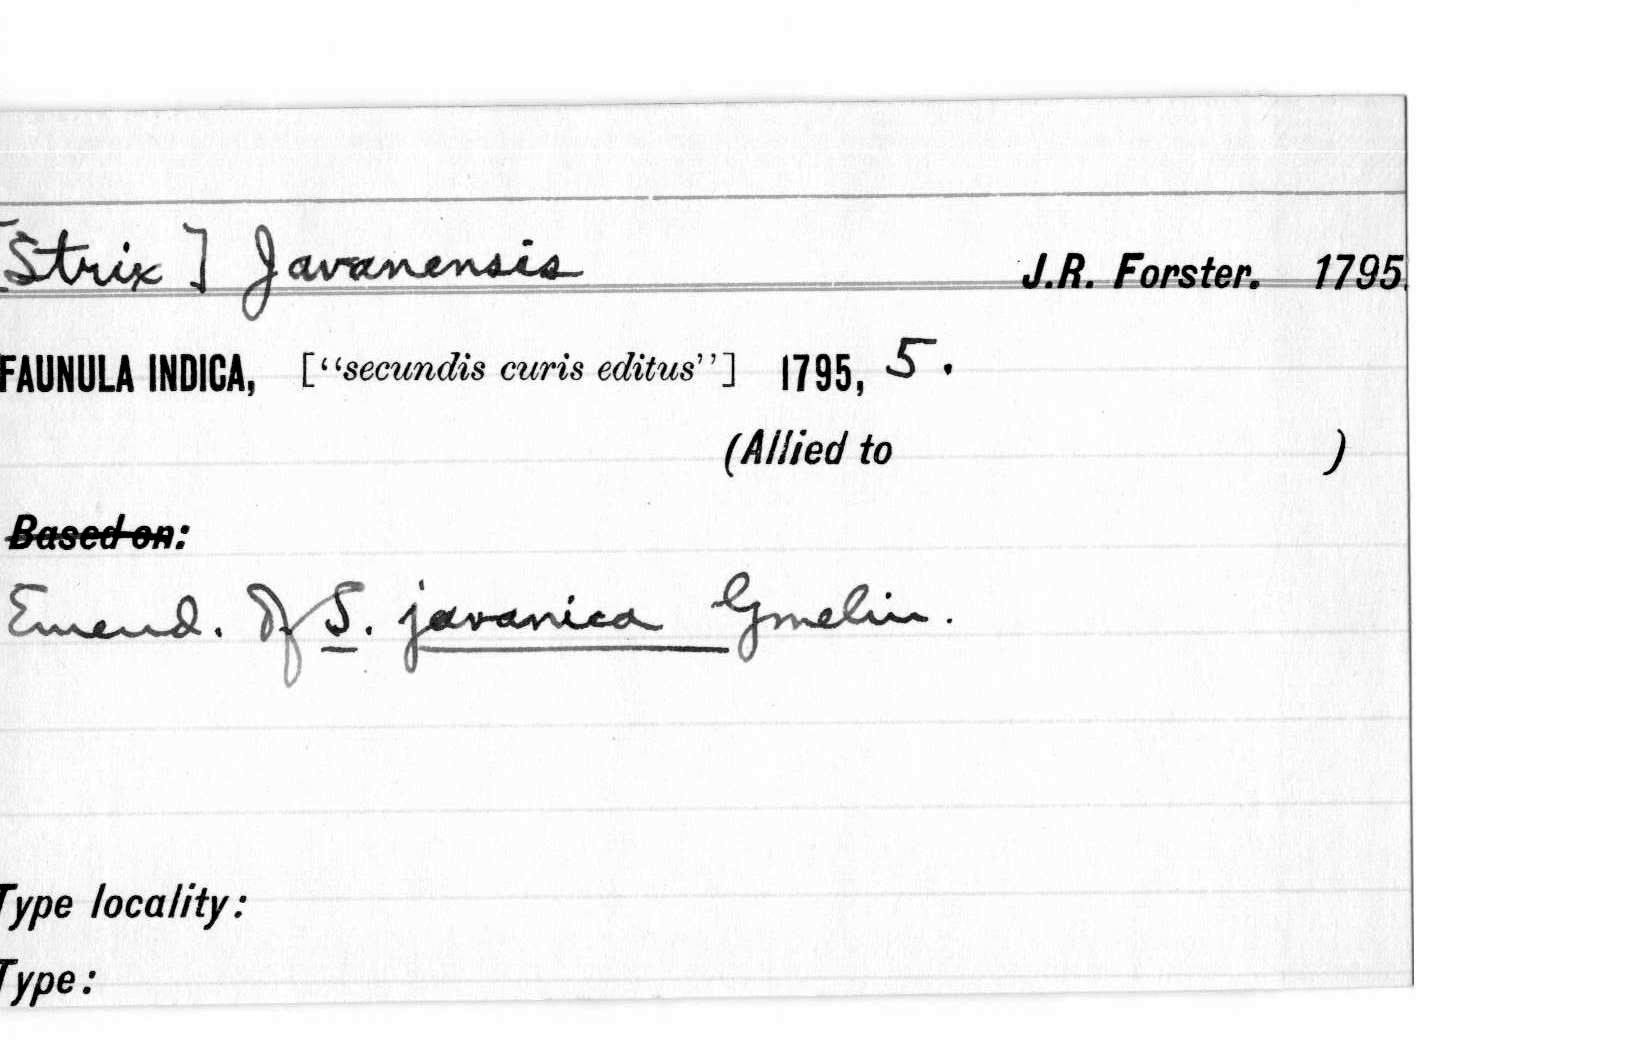 [Strix] Javanensis J.R. Forster. 1795.
FAUNULA INDICA, ["secundis curis editus"] 1795, 5.
(Allied to )
Based on:
Emend. of S. javanica Gmelin.
Type locality:
Type: